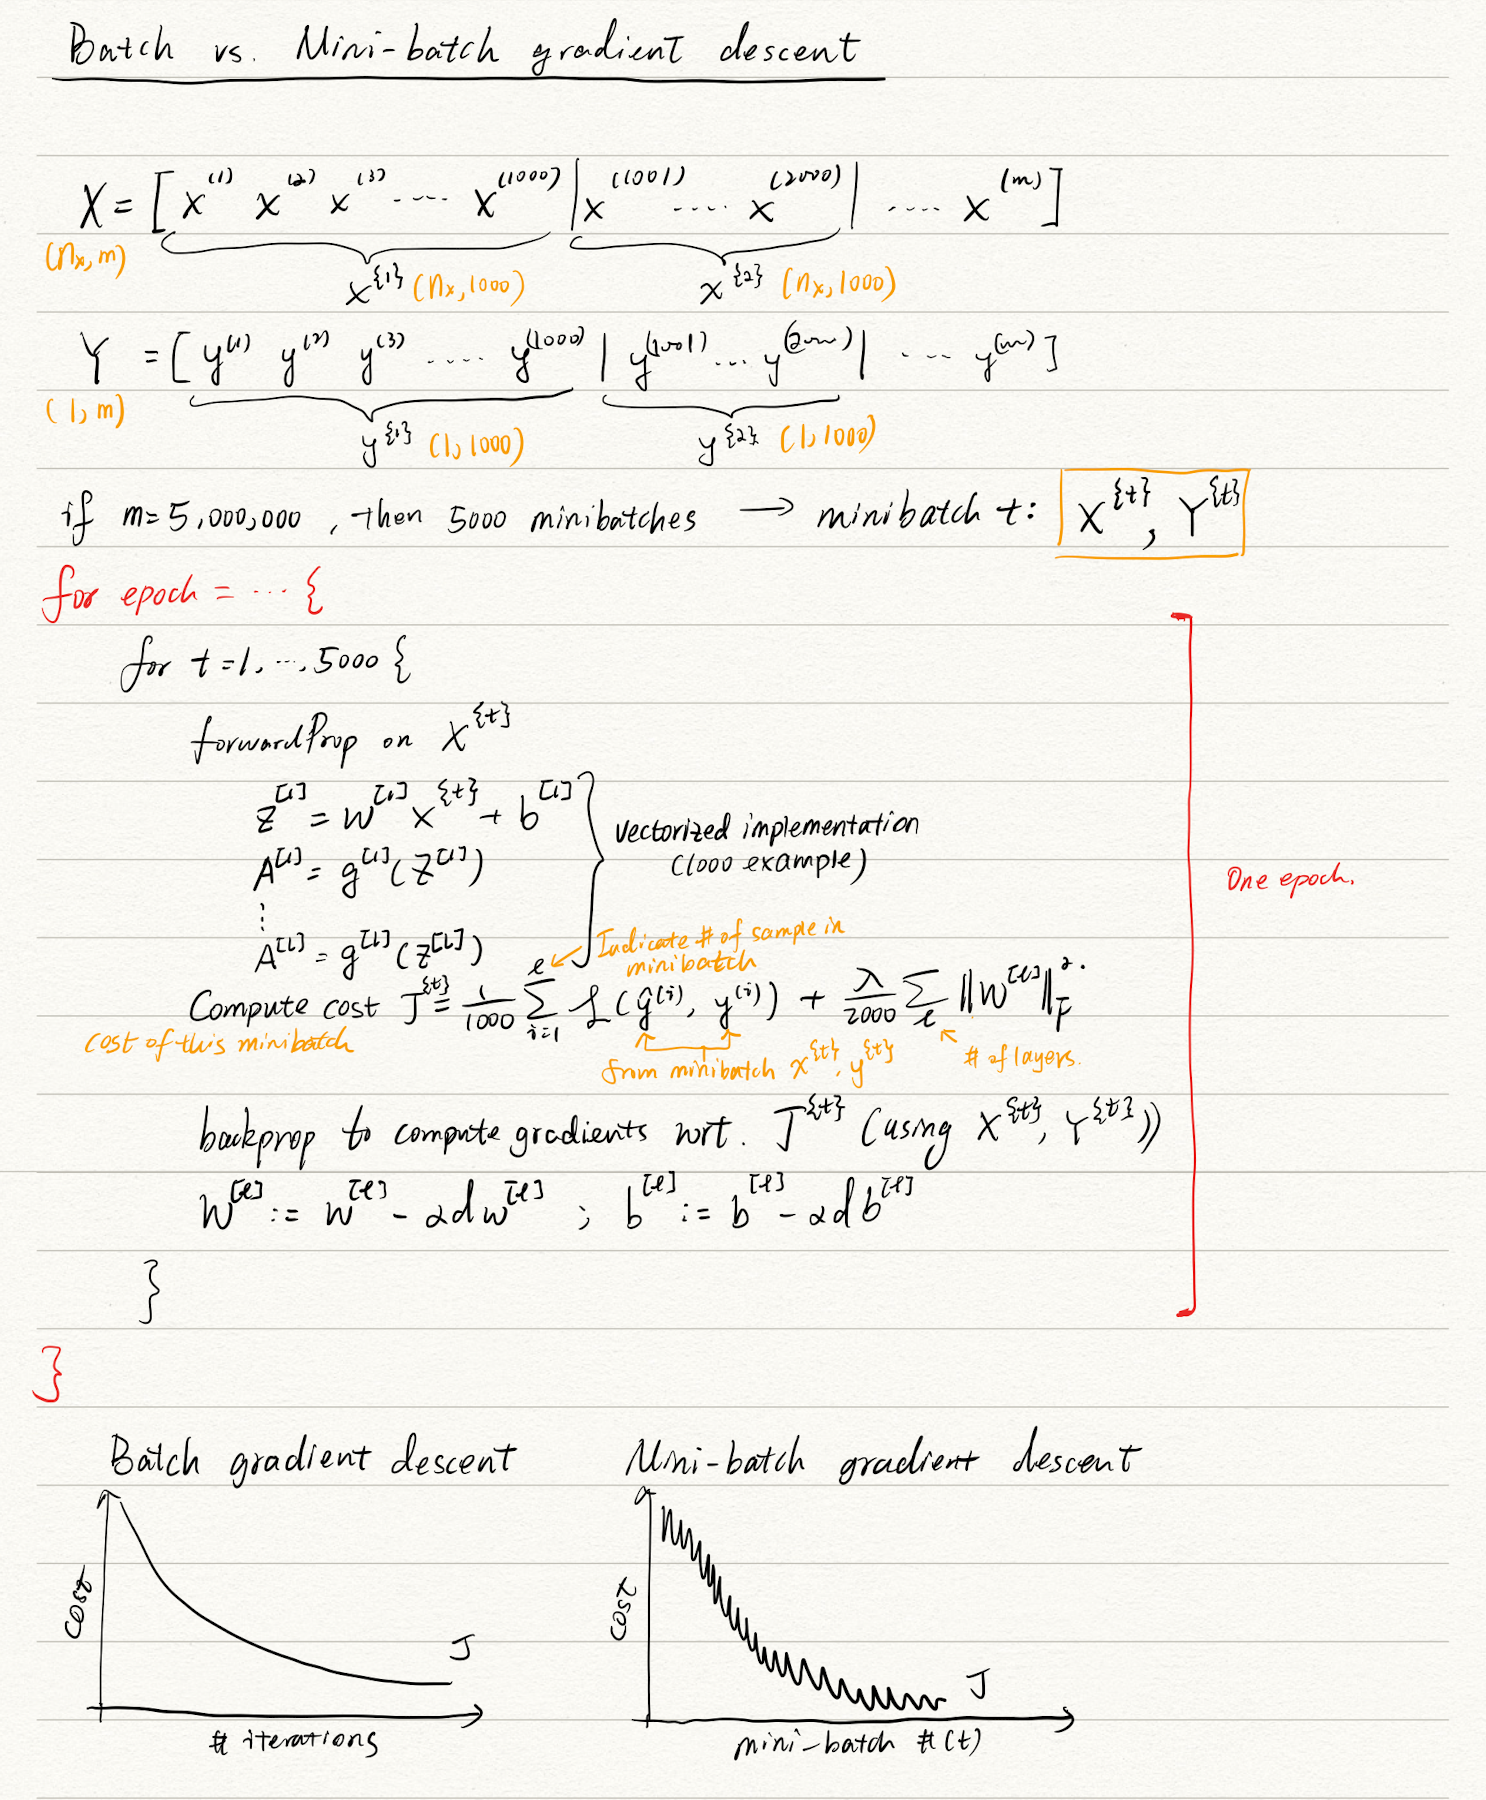 Batch vs. Mini-batch gradient descent
X = [ x^(1) x^(2) x^(3) ---- x^(1000) | x^(1001) ---- x^(2000) | ---- x^(m) ]
(n_x, m) x^{1} (n_x, 1000) x^{2} (n_x, 1000)
Y = [ y^(1) y^(2) y^(3) ---- y^(1000) | y^(1001) ... y^(2000) | ... y^(m) ]
(1, m) y^{1} (1, 1000) y^{2} (1, 1000)
if m = 5,000,000, then 5000 minibatches → minibatch t: X^{t}, Y^{t}
for epoch = ... {
for t = 1, ..., 5000 {
forwardProp on X^{t}
Z^[1] = W^[1] X^{t} + b^[1]
A^[1] = g^[1](Z^[1])
vectorized implementation
(1000 example)
⋮
A^[L] = g^[L](Z^[L])
Indicate # of sample in
minibatch
Compute cost J^{t} = 1/1000 ∑_{i=1}^{l} L(ŷ^(i), y^(i)) + λ/2000 ∑_l ||W^[l]||_F^2.
cost of this minibatch
from minibatch x^{t}, y^{t}
# of layers.
backprop to compute gradients wrt. J^{t} (using X^{t}, Y^{t}))
W^[l] := W^[l] - αdW^[l] ; b^[l] := b^[l] - αdb^[l]
}
}
One epoch.
Batch gradient descent
cost
J
# iterations
Mini-batch gradient descent
cost
J
mini-batch # (t)